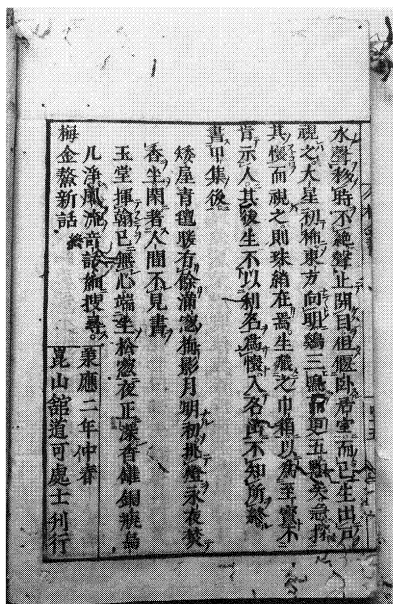 水聲移時不絶聲止開目但偃臥居室而已生出戶
視之大星初稀東方向明鷄三鳴而更五點矣急探
其懷而視之則珠綃在焉生藏之巾箱以爲至寶不
肯示人其後生不以利名爲懷入名山不知所終
書甲集後
矮屋青氊暖有餘滿窓梅影月明初挑燈永夜焚
香坐閑著人間不見書
玉堂揮翰已無心端坐松窓夜正深香鑵銅瓶烏
几淨風流奇話細搜尋
梅金鰲新話終
承應二年仲春
崑山舘道可處士刊行